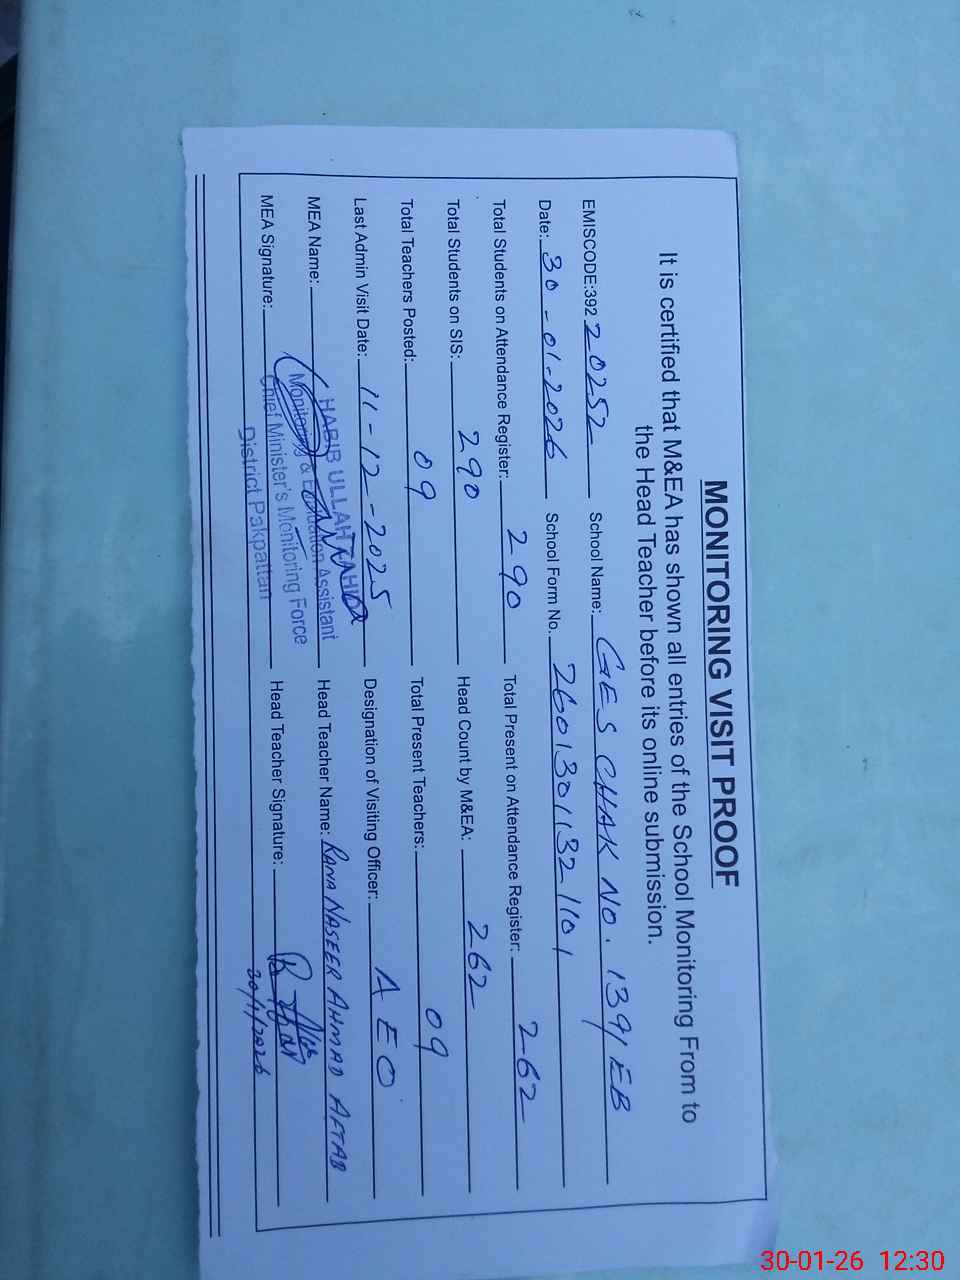 MONITORING VISIT PROOF
It is certified that M&EA has shown all entries of the School Monitoring From to
the Head Teacher before its online submission.
EMISCODE:392 20252 School Name: GES CHAK NO. 139/EB
Date: 30-01-2026 School Form No. 2601301132 1101
Total Students on Attendance Register: 290 Total Present on Attendance Register: 262
Total Students on SIS: 290 Head Count by M&EA: 262
Total Teachers Posted: 09 Total Present Teachers: 09
Last Admin Visit Date: 11-12-2025 Designation of Visiting Officer: AEO
MEA Name: HABIB ULLAH Head Teacher Name: RANA NASEER AHMAD AFTAB
Monitoring & Evaluation Assistant
MEA Signature: Chief Minister's Monitoring Force Head Teacher Signature:
District Pakpattan 30/1/2026
30-01-26 12:30